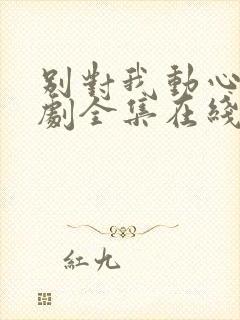 別對我動心
劇全集在綫
紅九